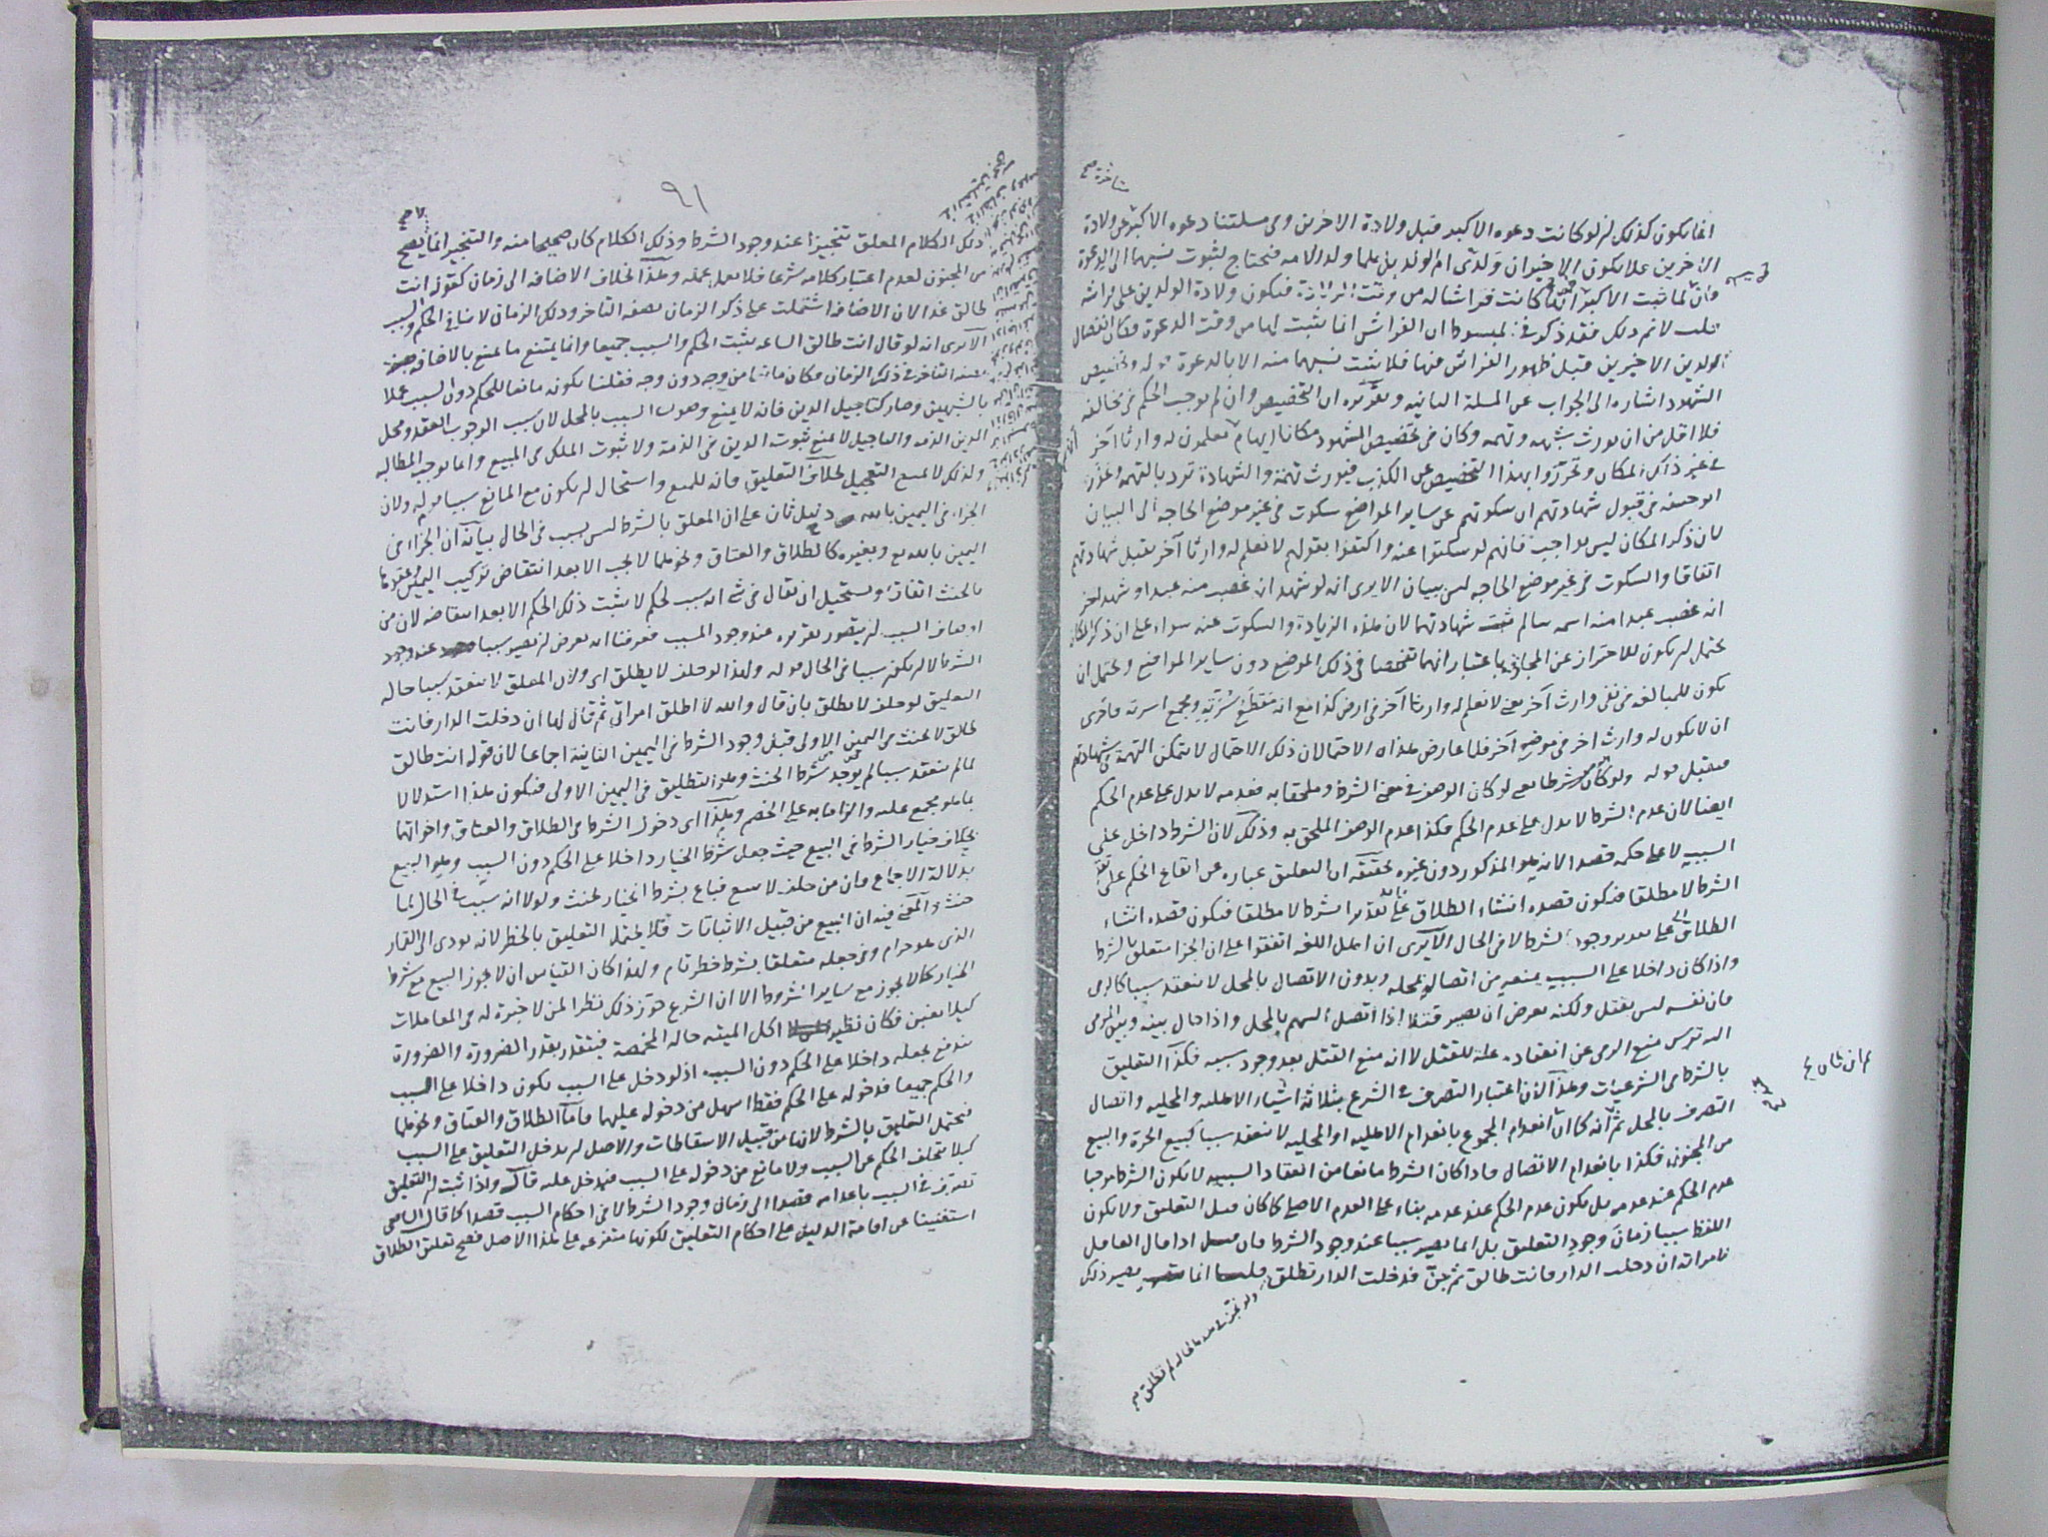 انما يكون كذلك ان لو كانت دعوه الاكبر قبل ولادة الاخرين وفى مسلتنا دعوه الاكبر عن ولادة
الاخرين فلا يكون الاخيران ولدى ام الولد بل هما ولدا الامه فنحتاج لثبوت نسبهما الى الدعوة
لما ثبت الاكبر كانت فراشا له من وقت فتكون ولادة الولدين على فراشه
قلت لا نم ذلك فقد ذكر فى المبسوط ان الفراش انما يثبت لها من وقت الدعوة فكان انفصال
الولدين الاخيرين قبل ظهور الفراش فيها فلا يثبت نسبهما منه الا بالدعوة قوله وتخصيص
الشهود اشاره الى الجواب عن المسلة الثانيه وتقريره ان التخصيص وان لم يوجب الحكم فى مخالفه
فلا اقل من ان يورث شبهه وتهمه وكان فى تخصيص الشهود مكانا ايهام لعلمهم له وارثا آخر
فى غير ذلك المكان وتحرزوا بهذا التخصيص عن الكذب فيورث تهمة والشهادة ترد بالتهمه وعذر
ابو حنيفه فى قبول شهادتهم ان سكوتهم عن ساير المواضع سكوت فى غير موضع الحاجه الى البيان
لان ذكر المكان ليس بواجب فانهم لو سكتوا عنه واكتفوا بقولهم لا نعلم له وارثا آخر يقبل شهادتهم
اتفاقا والسكوت فى غير موضع الحاجه ليس ببيان الا يرى انه لو شهد انه غصب منه عبدا وشهد اخر
انه غصب عبدا منه اسمه سالم شهادتهما لان هذه الزيادة والسكوت عنه سواء على ان ذكر المكان
يحتمل ان يكون للاحتراز عن المجازفه باعتبار انهما تفحصا فى ذلك الموضع دون ساير المواضع ويحتمل ان
يكون للمبالغه فى نفى وارث آخر يعنى لا نعلم له وارثا آخر فى ارض كذا مع انه مقطع سرته ومجمع اسرته فاحرى
ان لا يكون له وارث اخر فى موضع آخر فلما عارض هذان الاحتمالان ذلك الاحتمال لا تتمكن التهمة فى شهادتهم
فيقبل قوله ولو كان شرطا يعنى لو كان الوصف فى معنى الشرط وملحقا به فعدمه لا يدل على عدم الحكم
ايضا لان عدم الشرط لا يدل على عدم الحكم فكذا عدم الوصف الملحق به وذلك لان الشرط داخل على
السببيه لا على حكمه قصدا لانه هو المذكور دون غيره تحقيقه ان التعليق عباره عن ايقاع الحكم على
الشرط لا مطلقا فيكون قصده انشاء الطلاق على تقدير الشرط لا مطلقا فيكون قصده انشاء
الطلاق على تقدير وجود الشرط لا فى الحال الا يرى ان اهل اللغه اتفقوا على ان الجزا متعلق بالشرط
واذا كان داخلا على السبب يمنعه من اتصاله بمحله وبدون الاتصال بالمحل لا ينعقد سببا كالرمى
فان نفسه ليس بقتل ولكنه بعرض ان يصير قتلا اذا اتصل السهم بالمحل واذا حال بينه وبين المرمى
اليه ترس منع الرمى عن انعقاده علة للقتل لا انه منع القتل بعد وجود سببه فكذا التعليق
بالشرط فى الشرعيات وهذا لان اعتبار التصرف فى الشرع بثلاثة اشياء الاهليه والمحليه واتصال
التصرف بالمحل ثم انه كما ان انعدام المجموع بانعدام الاهليه او المحليه لا ينعقد سببا كبيع الحرة والبيع
من المجنون فكذا بانعدام الاتصال فاذا كان الشرط مانعا من انعقاد السببيه لا يكون الشرط موجبا
عدم الحكم عند عدمه بل يكون عدم الحكم عند عدمه بناء على العدم الاصلى كما كان قبل التعليق ولا يكون
اللفظ سببا زمان وجود التعليق بل انما يصير سببا عند وجود الشرط فان قيل اذا قال العاقل
لامراته ان دخلت الدار فانت طالق ثم جن فدخلت الدار تطلق قلنا انما يصير ذلك
ولو نجز فى هذه الحاله لم تطلق صح
٩١
ذلك الكلام المعلق تنجيزا عند وجود الشرط وذلك الكلام كان صحيحا منه والتنجيز انما يصح
من المجنون لعدم اعتبار كلامه شرعا فلا يعمل عمله وهذا بخلاف الاضافه الى زمان كقوله انت
طالق غدا لان الاضافه اشتملت على ذكر الزمان بصفه التاخر وذلك الزمان لا ينافى الحكم والسبب
الا يرى انه لو قال انت طالق الساعه يثبت الحكم والسبب جميعا وانما يمتنع ما يمنع بالاضافه
بصفه التاخر فى ذلك الزمان فكان مانعا من وجه دون وجه فقلنا بكونه مانعا للحكم دون السبب عملا
بالشبهين وصار كتاجيل الدين فانه لا يمنع وصول السبب بالمحل لان سبب الوجوب العقد ومحل
الدين الذمه والتاجيل لا يمنع ثبوت الدين فى الذمة ولا ثبوت الملك فى المبيع وانما يوجب المطالبه
ولذلك لا يمنع التعجيل بخلاف التعليق فانه للمنع واستحال ان يكون مع المانع سببا قوله ولان
الجزاء فى اليمين بالله دليل ثان على ان المعلق بالشرط ليس بسبب فى الحال بيانه ان الجزاء فى
اليمين بالله وبغيره كالطلاق والعتاق ونحوهما لا يجب الا بعد انتقاض تركيب اليمين وعقدها
بالحنث اتفاقا ويستحيل ان يقال فى شئ انه سبب لحكم لا يثبت ذلك الحكم الا بعد انتقاضه لان من
اوصاف السبب ان يتصور تقرره عند وجود المسبب فعرفنا انه بعرض ان يصير سببا عند وجود
الشرط لا ان يكون سببا فى الحال قوله ولهذا لو حلف لا يطلق اى ولان المعلق لا ينعقد سببا حاله
التعليق لو حلف لا يطلق بان قال والله لا اطلق امراتى ثم قال لها ان دخلت الدار فانت
طالق لا يحنث فى اليمين الاولى قبل وجود الشرط فى اليمين الثانية اجماعا لان قوله انت طالق
لما لم ينعقد سببا لم يوجد شرط الحنث وهو التطليق فى اليمين الاولى فيكون هذا استدلالا
بما هو مجمع عليه والزاما به على الخصم وهذا اى دخول الشرط فى الطلاق والعتاق واخواتهما
بخلاف خيار الشرط فى البيع حيث جعل شرط الخيار داخلا على الحكم دون السبب وهو البيع
بدلالة الاجماع فان من حلف لا يبيع فباع بشرط الخيار يحنث ولولا انه سبب فى الحال لما
حنث والمعنى فيه ان البيع من قبيل الاثباتات فلا يحتمل التعليق بالخطر لانه يودى الى القمار
الذى هو حرام وفى جعله متعلقا بشرط خطر تام ولهذا كان القياس ان لا يجوز البيع مع شرط
الخيار كما لا يجوز مع ساير الشروط الا ان الشرع جوز ذلك نظرا لمن لا خبرة له فى المعاملات
كيلا يغبن فكان نظير اكل الميته حاله المخمصة فيتقدر بقدر الضرورة والضرورة
تندفع بجعله داخلا على الحكم دون السبب اذ لو دخل على السبب يكون داخلا على السبب
والحكم جميعا فدخوله على الحكم فقط اسهل من دخوله عليهما فاما الطلاق والعتاق ونحوهما
فيحتمل التعليق بالشرط لانها من قبيل الاسقاطات والاصل ان يدخل التعليق على السبب
كيلا يتخلف الحكم عن السبب ولا مانع من دخوله على السبب فيدخل عليه قال واذا ثبت ان التعليق
تصرف فى السبب باعدامه قصدا الى زمان وجود الشرط لا فى احكام السبب قصدا كما قال الشافعى
استغنينا عن اقامة الدليل على احكام التعليق لكونها متفرعه على هذا الاصل فصح تعليق الطلاق